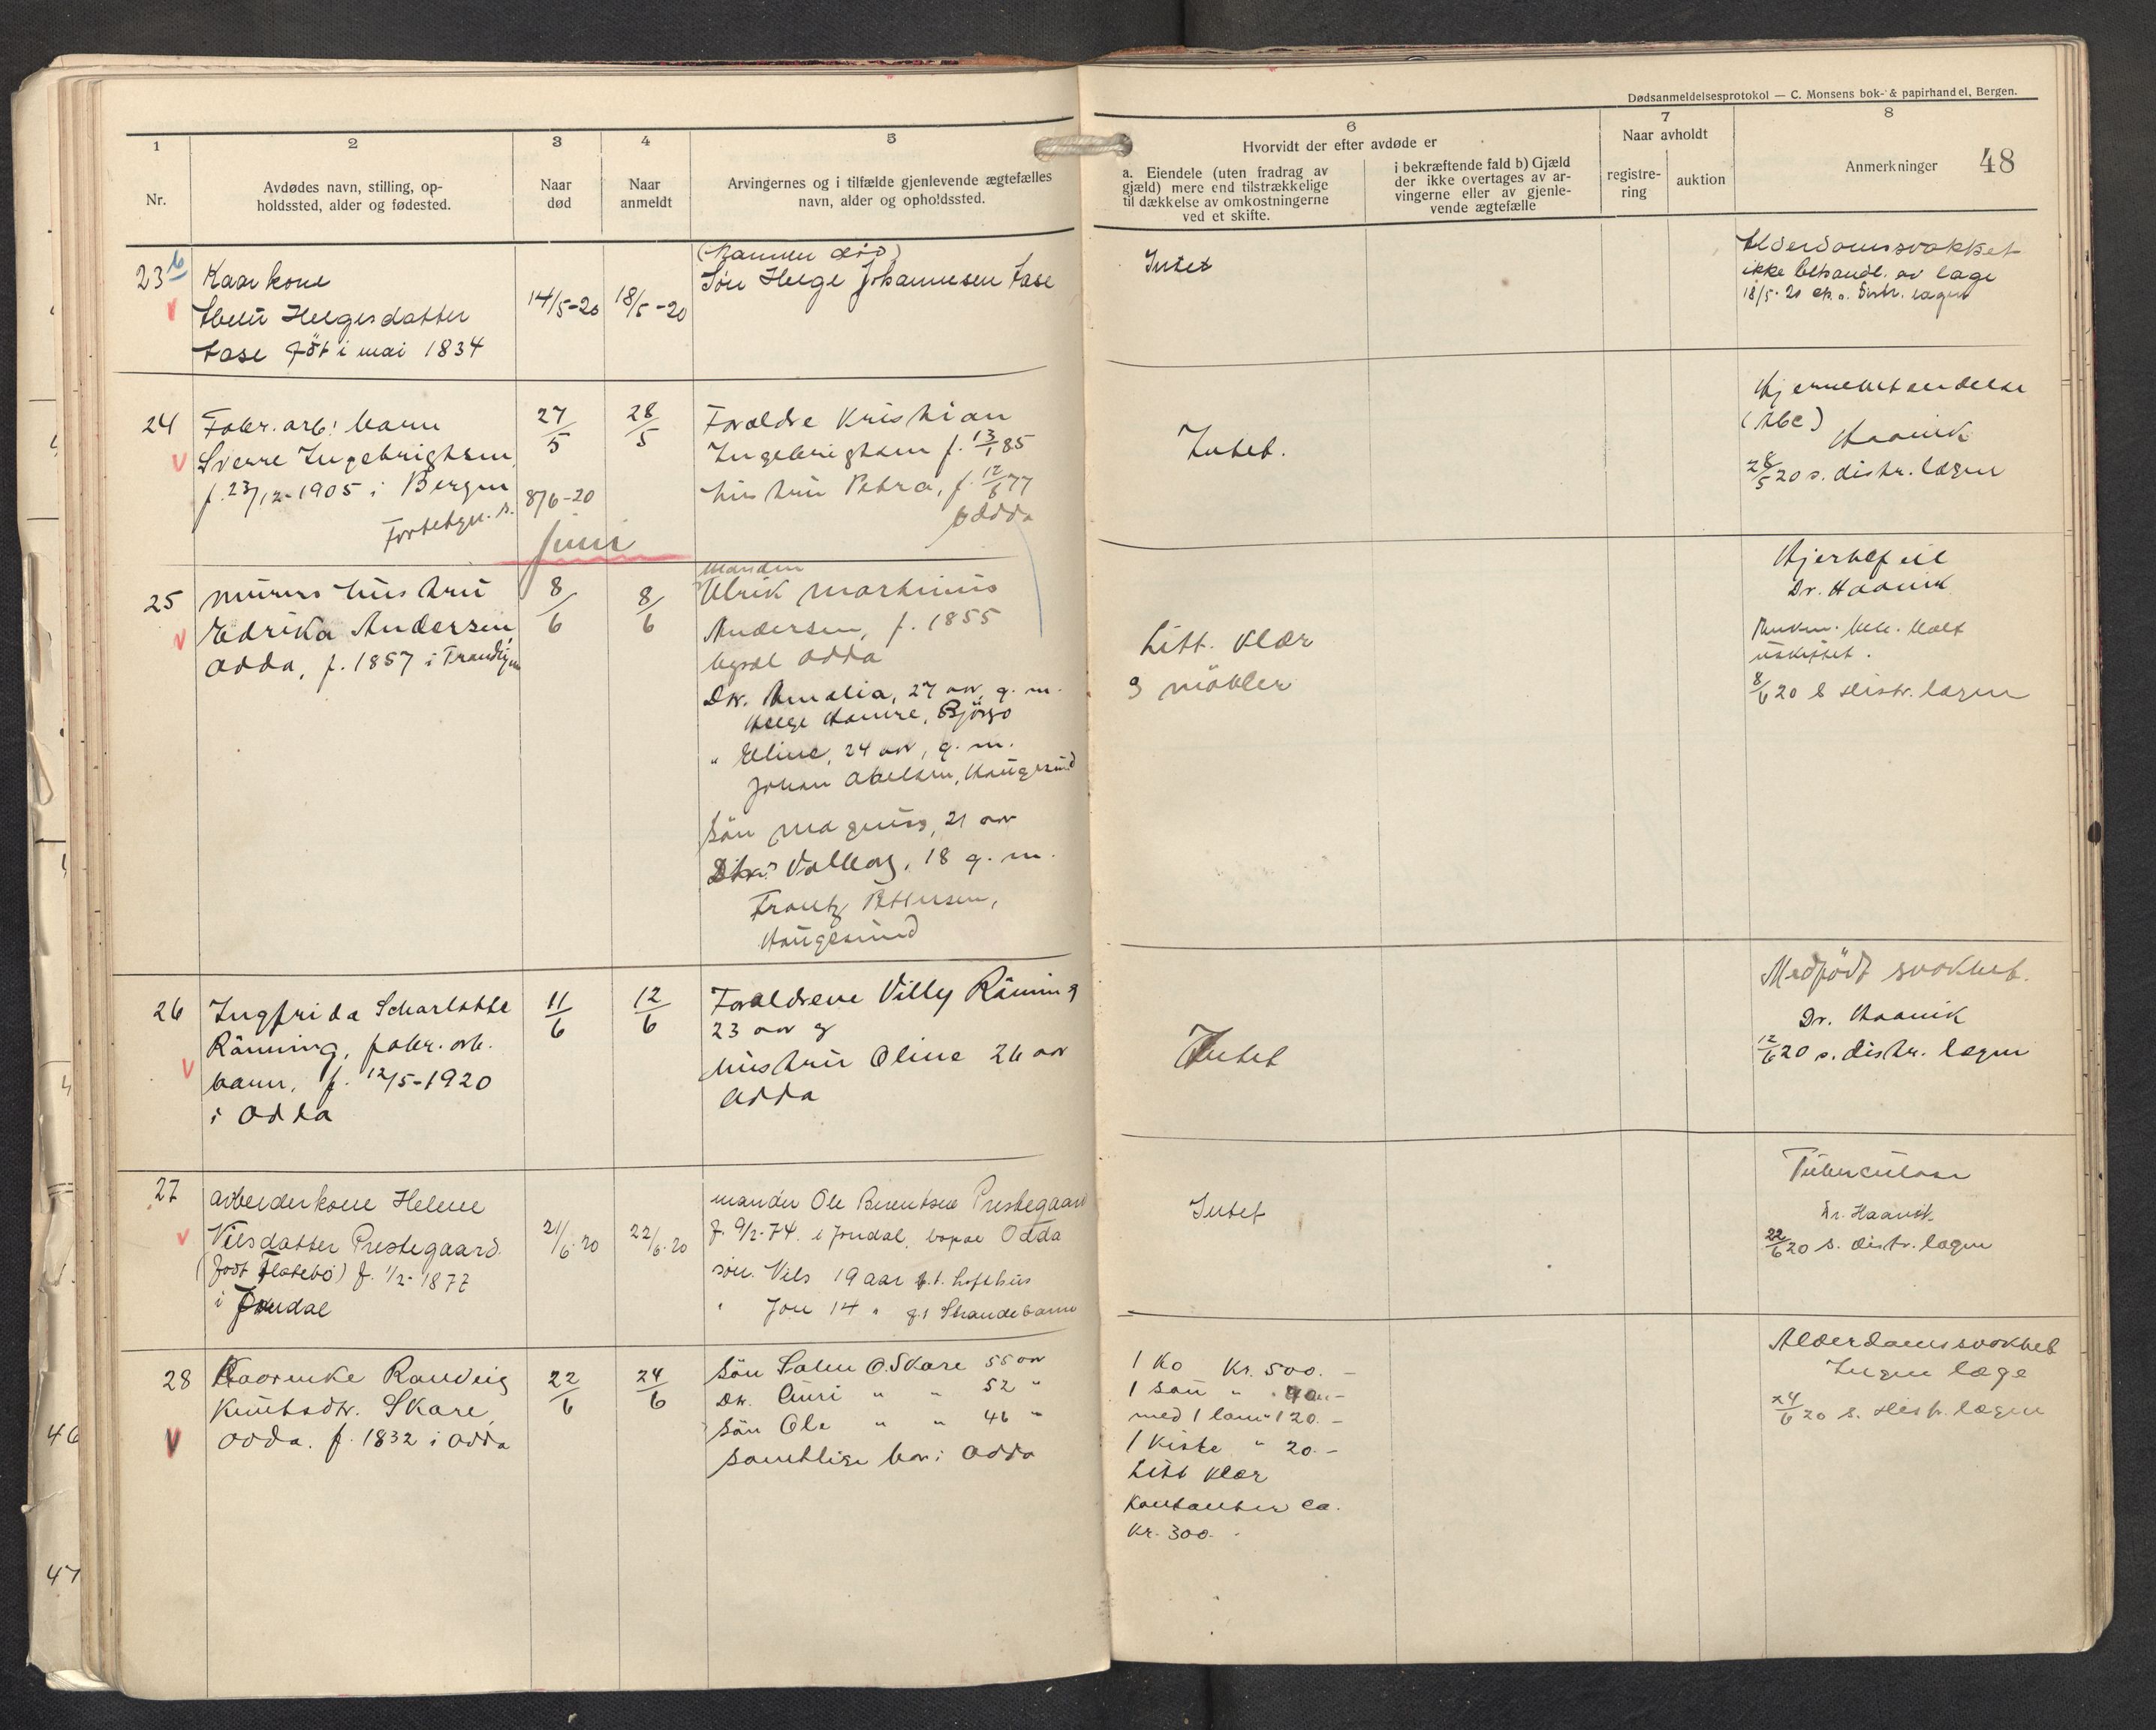 Dødsanmeldelsesprotokol — C. Monsens bok- & papirhandel, Bergen.
48
1
Nr.
2
Avdødes navn, stilling, op-
holdssted, alder og fødested.
3
Naar
død
4
Naar
anmeldt
5
Arvingernes og i tilfælde gjenlevende ægtefælles
navn, alder og opholdssted.
6
Hvorvidt der efter avdøde er
a. Eiendele (uten fradrag av
gjæld) mere end tilstrækkelige
til dækkelse av omkostningerne
ved et skifte.
i bekræftende fald b) Gjæld
der ikke overtages av ar-
vingerne eller av gjenle-
vende ægtefælle
7
Naar avholdt
registre-
ring
auktion
8
Anmerkninger
23 b
Kaarkone
Helgesdatter
Tase föt i mai 1834
14/5-20
18/5-20
(Mannen död)
Søn Helge Johannesen Tase
Intet
Alderdomssvakhet
ikke behandl. av læge
18/5-20 distr. lægen
24
Fabr. arb. barn
Sverre Ingebrigtsen
f. 23/12-1905 i Bergen
27/5
28/5
8/6-20
Forældre Kristian
Ingebrigtsen f. 13/1 85
hustru Petra, f. 12/6 77
Odda
Intet.
Hjernebetændelse
Haavik
28/5 20 s. distr. lægen
Juni
25
Murers hustru
Edrika Andersen
Odda, f. 1857 i
8/6
8/6
Manden
Ulrik Martinius
Andersen, f. 1855
bopæl Odda
Dtr. Amalia, 27 aar, g. m.
Helge Hamre,
" Eline, 24 aar, g. m.
Johan Abelsen, Haugesund
Sön Magnus, 21 aar
Dtr. Valborg, 18 g. m.
Frantz Pettersen,
Haugesund
Litt. klær
& möbler
Hjertefeil
Dr. Haavik
uskiftet.
8/6 20 s distr. lægen
26
Ingfrida Scharlotte
Rönning, fabr. arb.
barn, f. 12/5-1920
i Odda
11/6
12/6
Forældrene Villy Rönning
23 aar &
hustru Oline 26 aar
Odda
Intet
Medfödt svakhet.
Dr. Haavik
12/6 20 s. distr. lægen
27
Arbeiderkone Helene
Nilsdatter Prestegaard
(födt Flatebö) f. 1/2-1877
i Jondal
21/6-20
22/6-20
manden Ole Berentsen Prestegaard
f. 9/2-74. i Jondal, bopæl Odda
sön. Nils 19 aar p.t. Lofthus
" Jon 14 " p.t Strandebarm
Intet
Tuberculose
Dr. Haavik
22/6 20 s. distr. lægen
28
Kaarenke Randveig
Knutsdtr. Skare,
Odda. f. 1832 i Odda
22/6
24/6
Sön O. Skare 55 aar
Dtr. Guri " " 52 "
Sön Ole " " 46 "
samtlige bor i Odda
1 Ko Kr. 500.-
1 sau "
med 1 lam " 120.-
1 Kiste " 20.-
Litt klær
Kontanter ca.
Kr. 300.-
Alderdomssvakhet
Ingen læge
24/6 20 s. distr. lægen
46
47